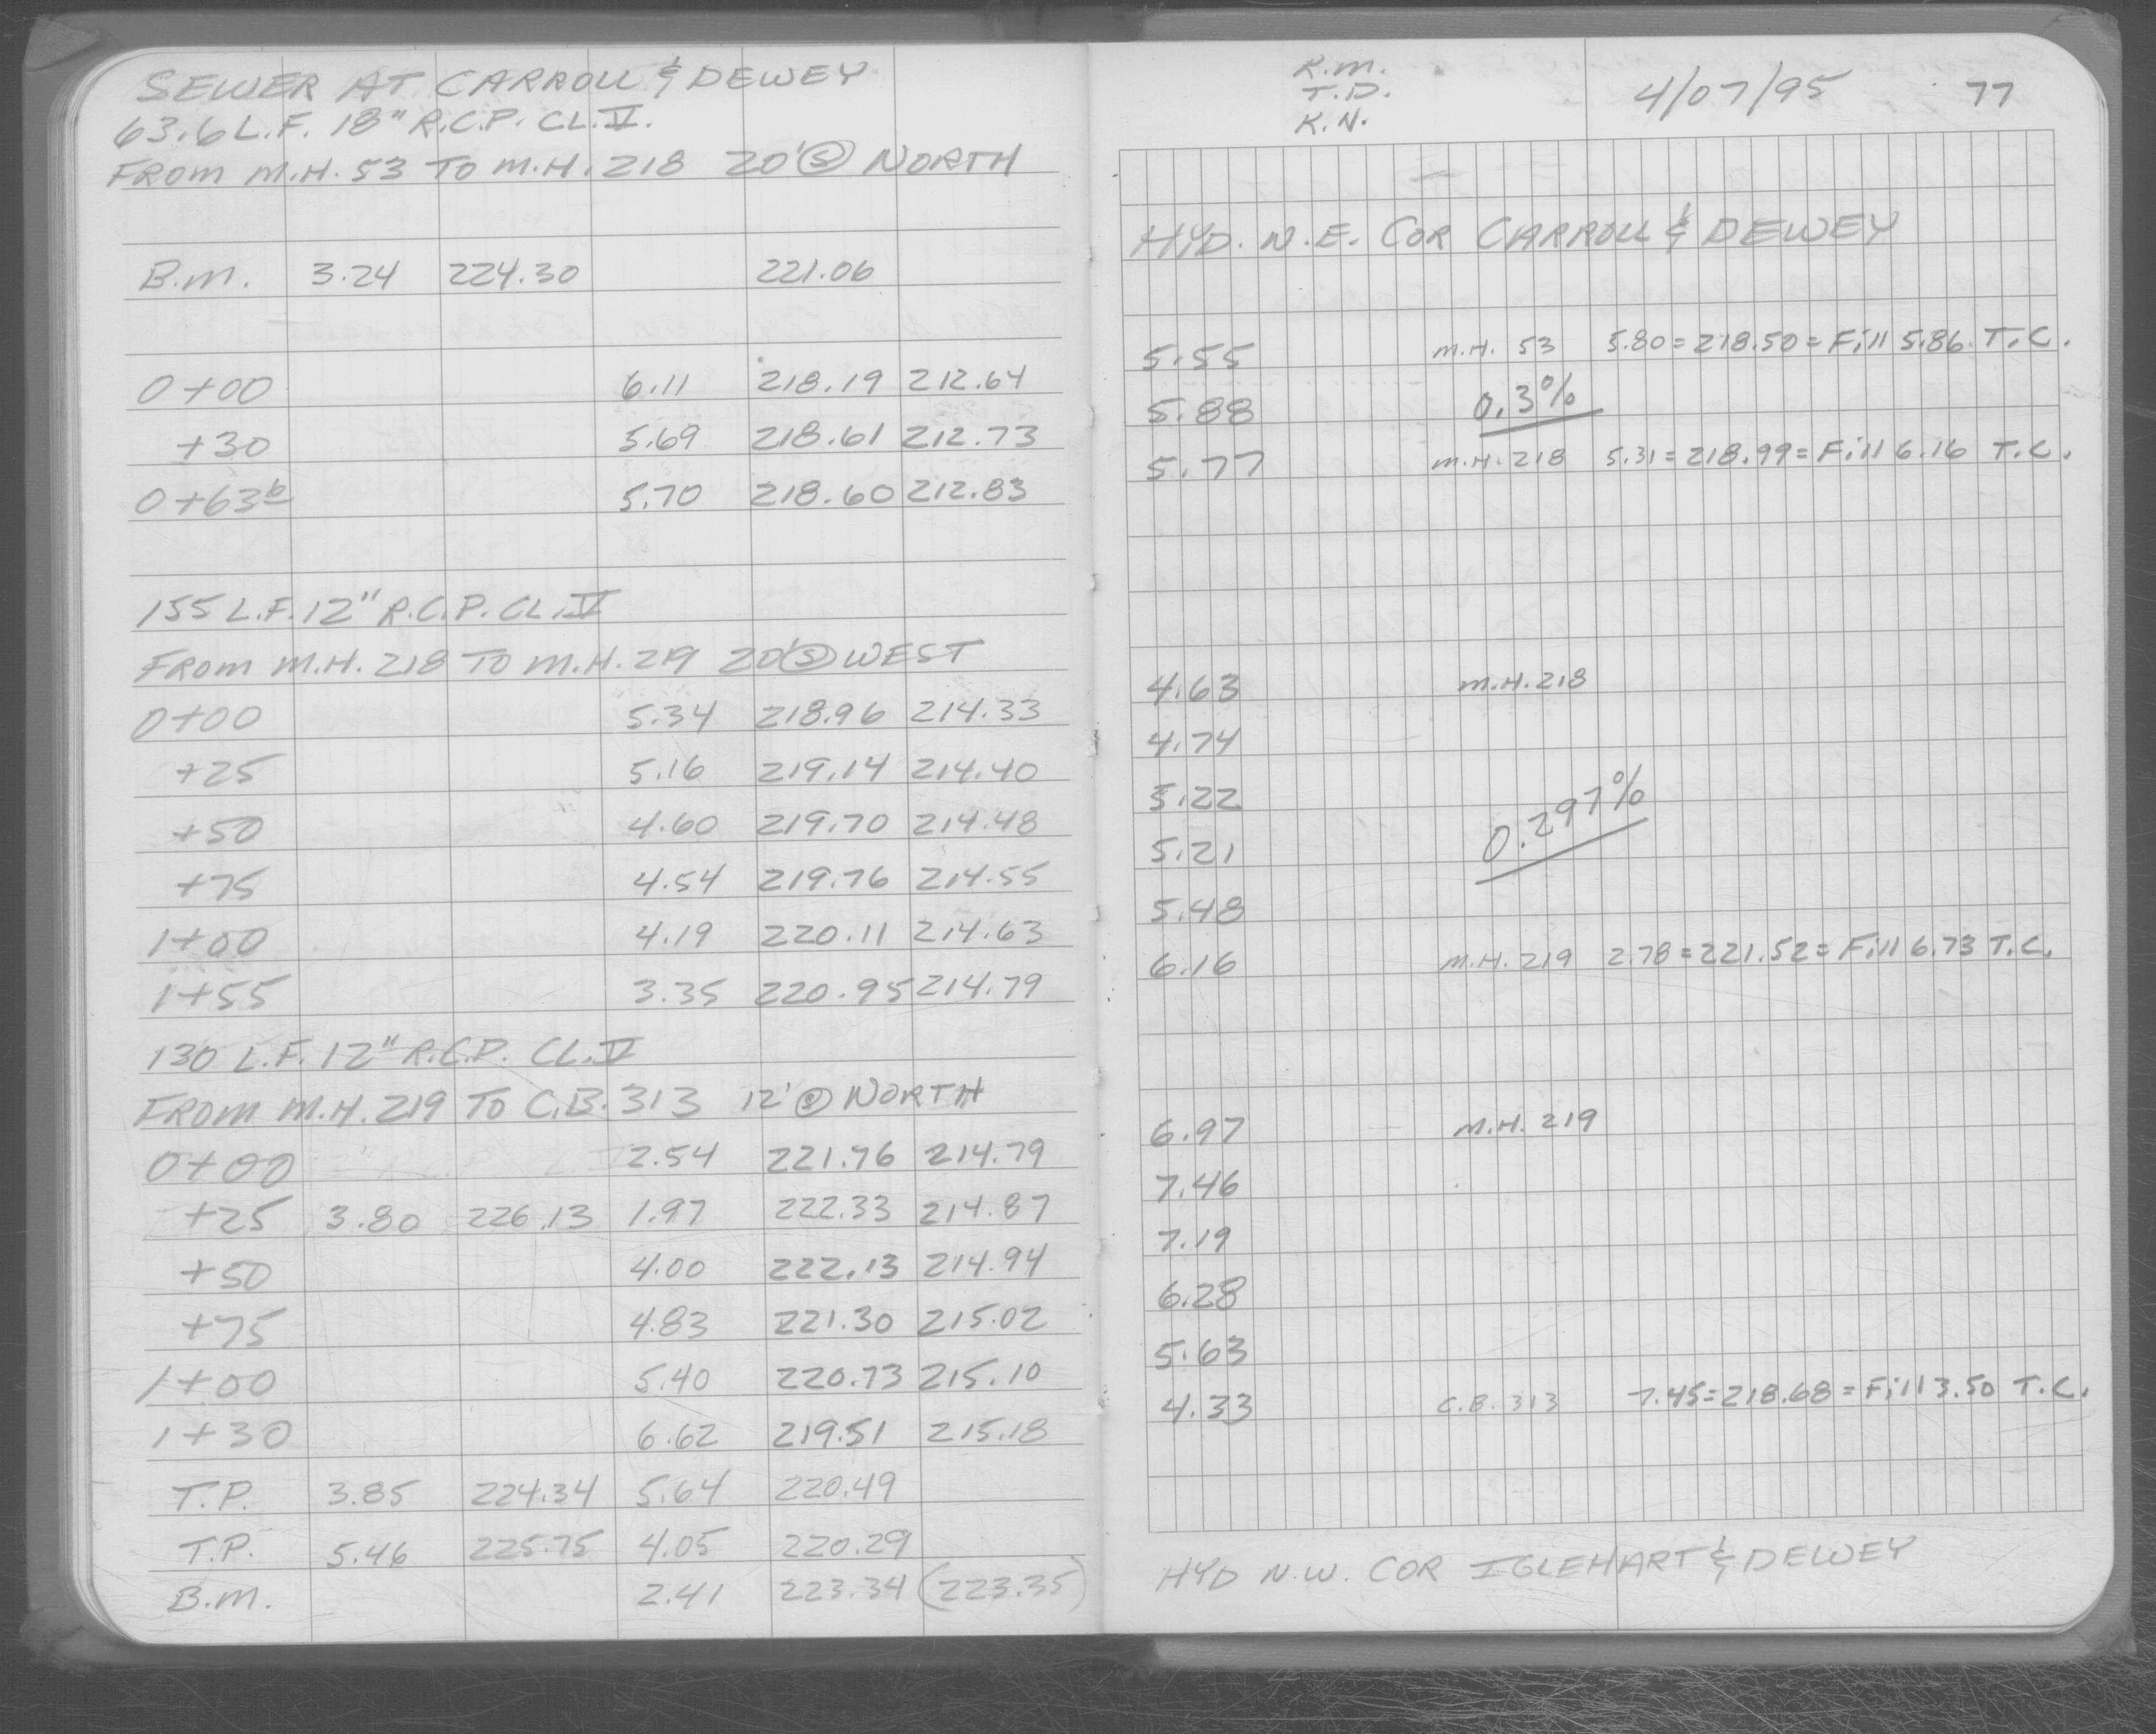 SEWER AT CARROLL & DEWEY
63.6 L.F. 18" R.C.P. CL. V.
FROM M.H. 53 TO M.H. 218 20' Ⓢ NORTH
B.M. 3.24 224.30 221.06
0+00 6.11 218.19 212.64
+30 5.69 218.61 212.73
0+63⁶ 5.70 218.60 212.83
155 L.F. 12" R.C.P. CL. V
FROM M.H. 218 TO M.H. 219 20' Ⓢ WEST
0+00 5.34 218.96 214.33
+25 5.16 219.14 214.40
+50 4.60 219.70 214.48
+75 4.54 219.76 214.55
1+00 4.19 220.11 214.63
1+55 3.35 220.95 214.79
130 L.F. 12" R.C.P. CL. V
FROM M.H. 219 TO C.B. 313 12' Ⓢ NORTH
0+00 2.54 221.76 214.79
+25 3.80 226.13 1.97 222.33 214.87
+50 4.00 222.13 214.94
+75 4.83 221.30 215.02
1+00 5.40 220.73 215.10
1+30 6.62 219.51 215.18
T.P. 3.85 224.34 5.64 220.49
T.P. 5.46 225.75 4.05 220.29
B.M. 2.41 223.34 (223.35)
K.M.
T.D.
K.N.
4/07/95 77
HYD. N.E. COR CARROLL & DEWEY
5.55 M.H. 53 5.80 = 218.50 = Fill 5.86 T.C.
5.88 0.3%
5.77 M.H. 218 5.31 = 218.99 = Fill 6.16 T.C.
4.63 M.H. 218
4.74
5.22
0.297%
5.21
5.48
6.16 M.H. 219 2.78 = 221.52 = Fill 6.73 T.C.
6.97 M.H. 219
7.46
7.19
6.28
5.63
4.33 C.B. 313 7.45 = 218.68 = Fill 3.50 T.C.
HYD N.W. COR IGLEHART & DEWEY